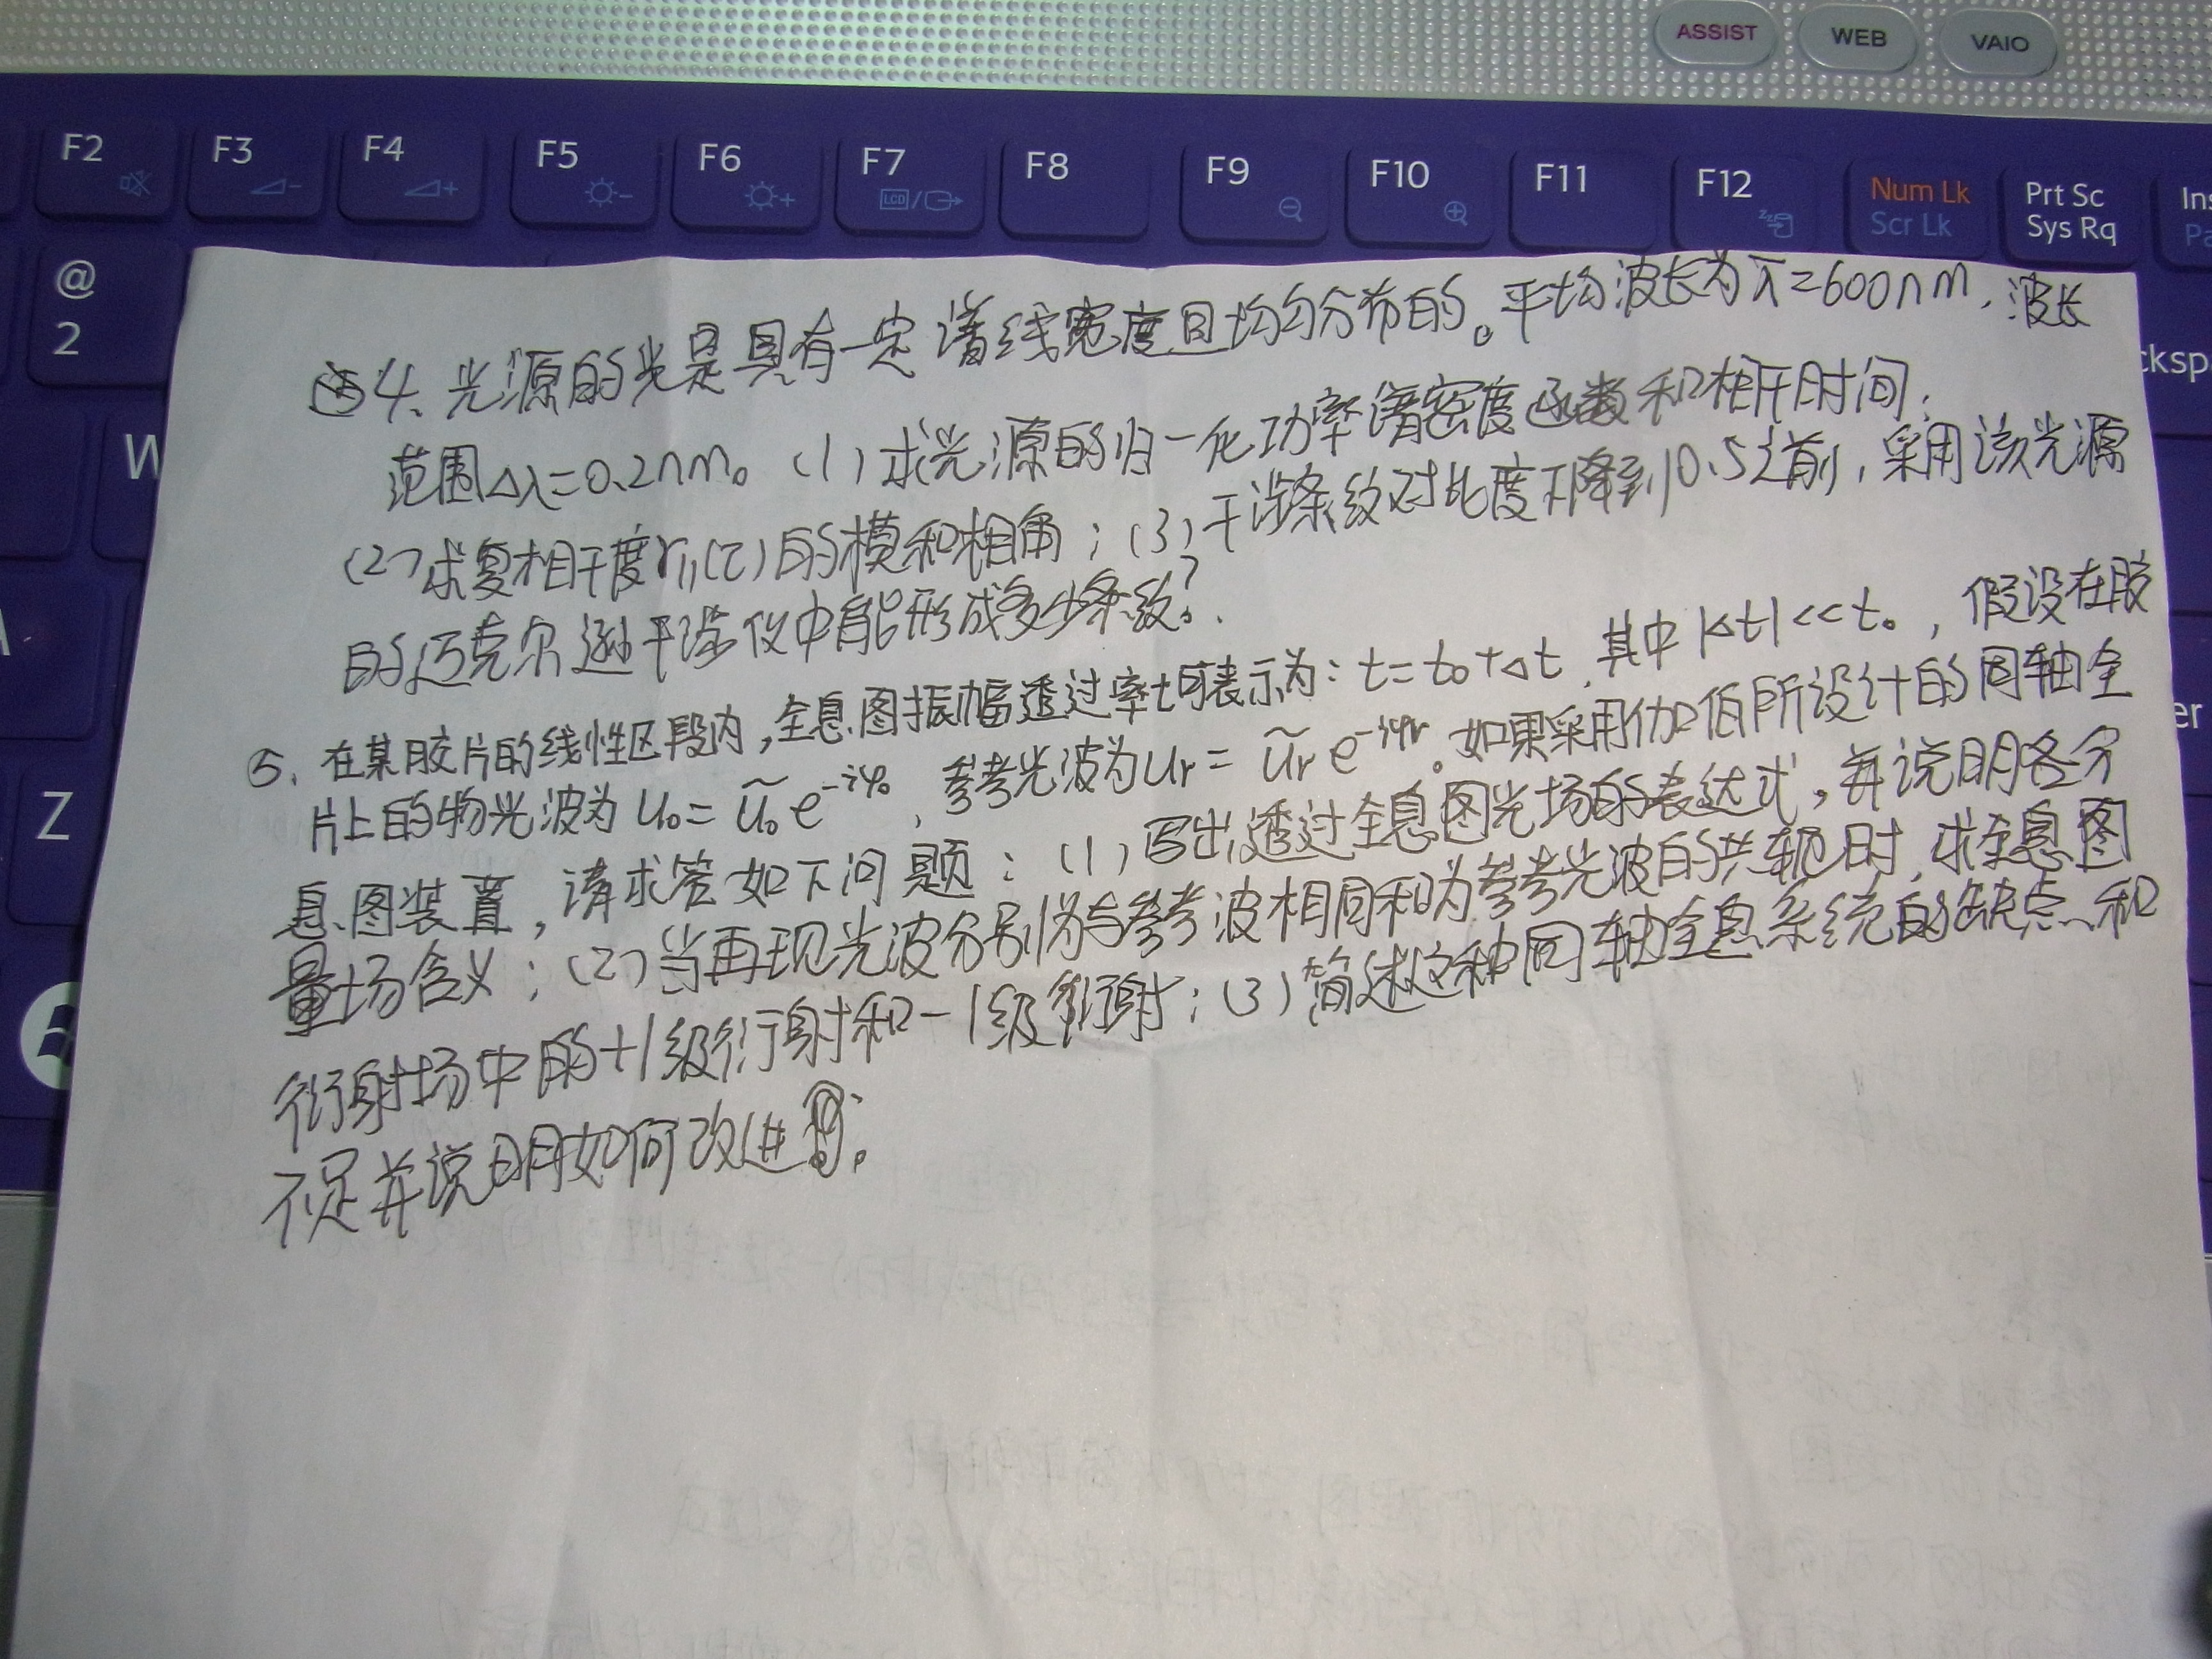 ASSIST WEB VAIO
F2 F3 F4 F5 F6 F7 F8 F9 F10 F11 F12 Num Lk Prt Sc Ins
LCD Scr Lk Sys Rq Pa
@
2
W
cksp
A
er
Z
4、光源的光是具有一定谱线宽度且均匀分布的。平均波长为λ̄=600nm，波长
范围Δλ=0.2nm。(1)求光源的归一化功率谱密度函数和相干时间；
(2)求复相干度r₁₁(τ)的模和相角；(3)干涉条纹对比度下降到0.5之前，采用该光源
的迈克尔逊干涉仪中能形成多少条纹？
5、在某胶片的线性区段内，全息图振幅透过率t可表示为：t=t₀+Δt，其中|Δt|<<t₀，假设在胶
片上的物光波为u₀=ũ₀e^(-iφ₀)，参考光波为uᵣ=ũᵣe^(-iφᵣ)。如果采用伽伯所设计的同轴全
息图装置，请求答如下问题：(1)写出透过全息图光场的表达式，并说明各分
量场含义；(2)当再现光波分别为与参考波相同和为参考光波的共轭时，求全息图
衍射场中的+1级衍射和-1级衍射；(3)简述这种同轴全息系统的缺点和
不足并说明如何改进。